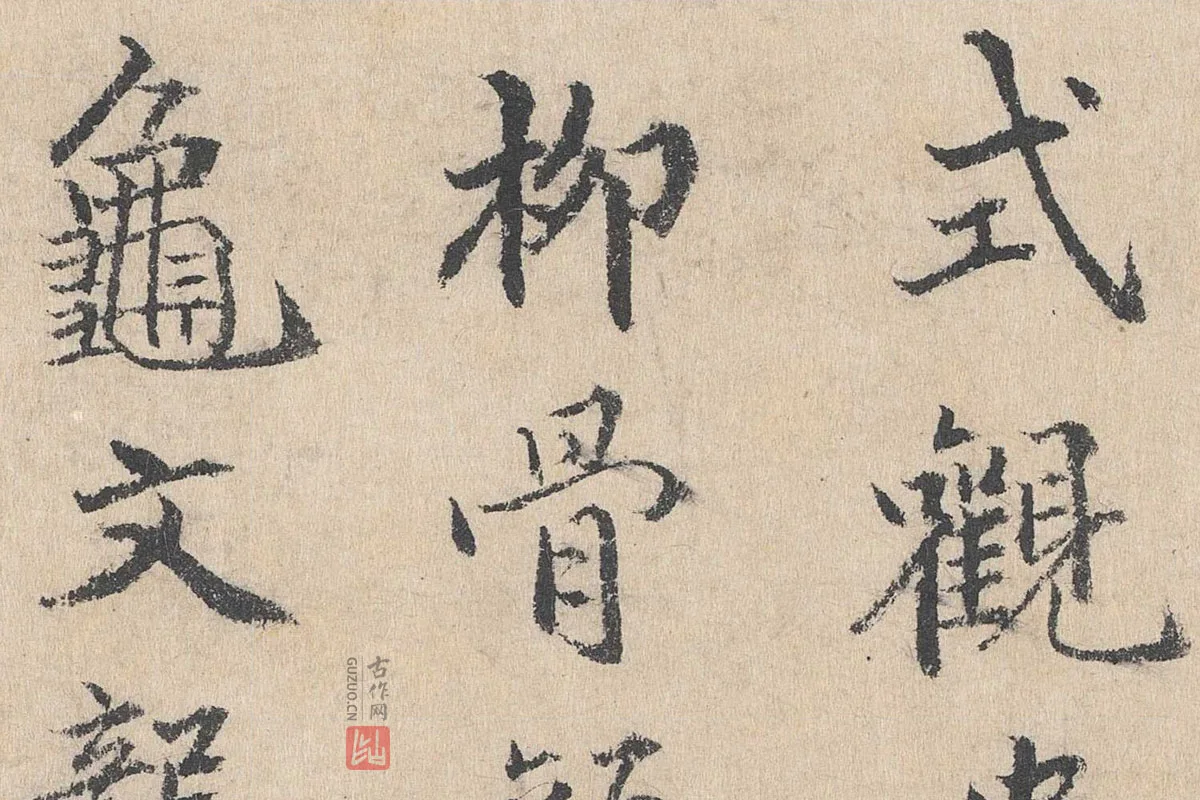 式觀
柳骨
龜文
古作网
GUZUO.CN